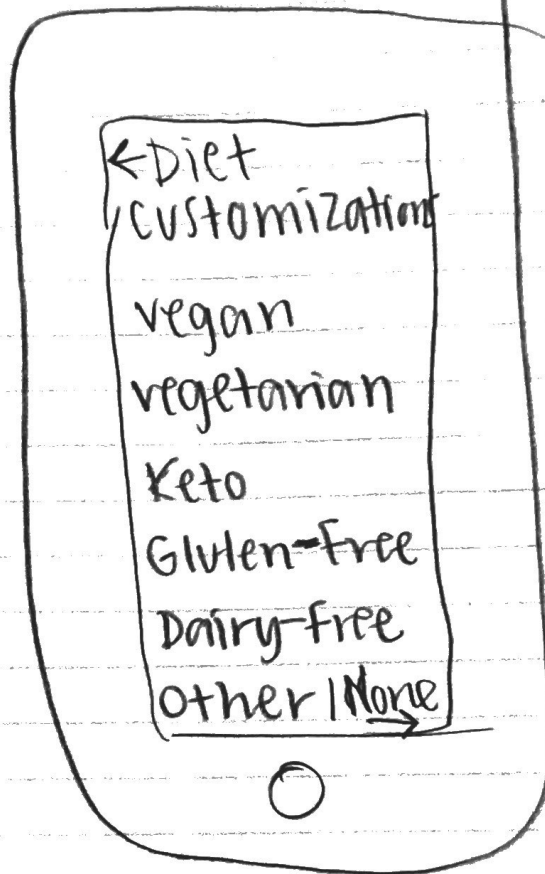 ←Diet
customization
vegan
vegetarian
Keto
Gluten-Free
Dairy-free
other/None
→